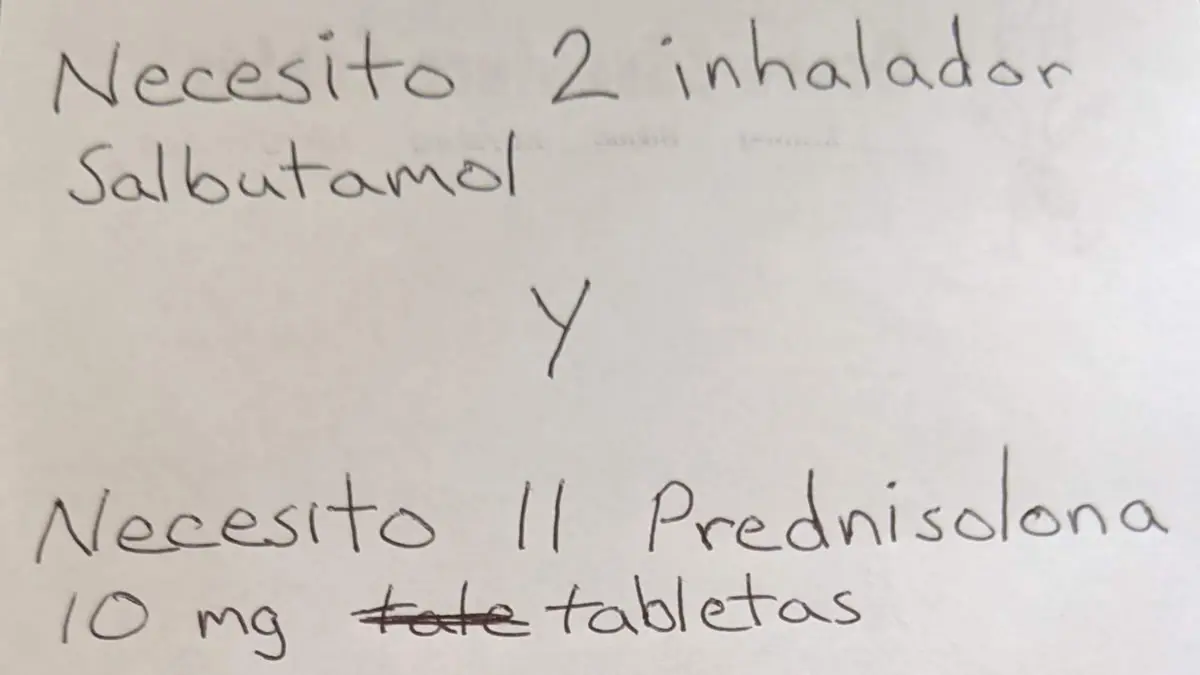 Necesito 2 inhalador
Salbutamol
Y
Necesito 11 Prednisolona
10 mg tate tabletas